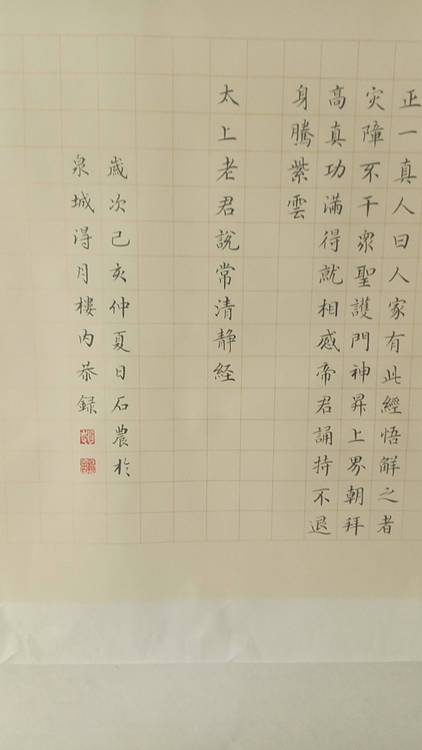 正一真人曰人家有此經悟解之者
灾障不干衆聖護門神昇上界朝拜
高真功满得就相感帝君誦持不退
身騰紫雲
太上老君說常清靜经
歲次己亥仲夏日石農於
泉城得月樓内恭録